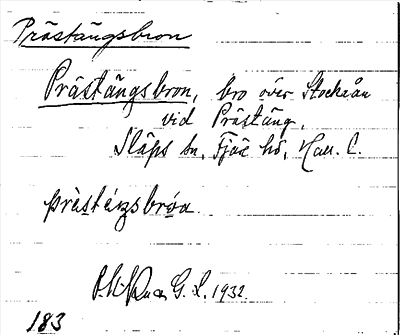 Prästängsbron
Prästängsbron, bro över Stockaån
vid Prästäng,
Släps sn, Fjäre hd, Hall. l.
G. L. 1932.
183